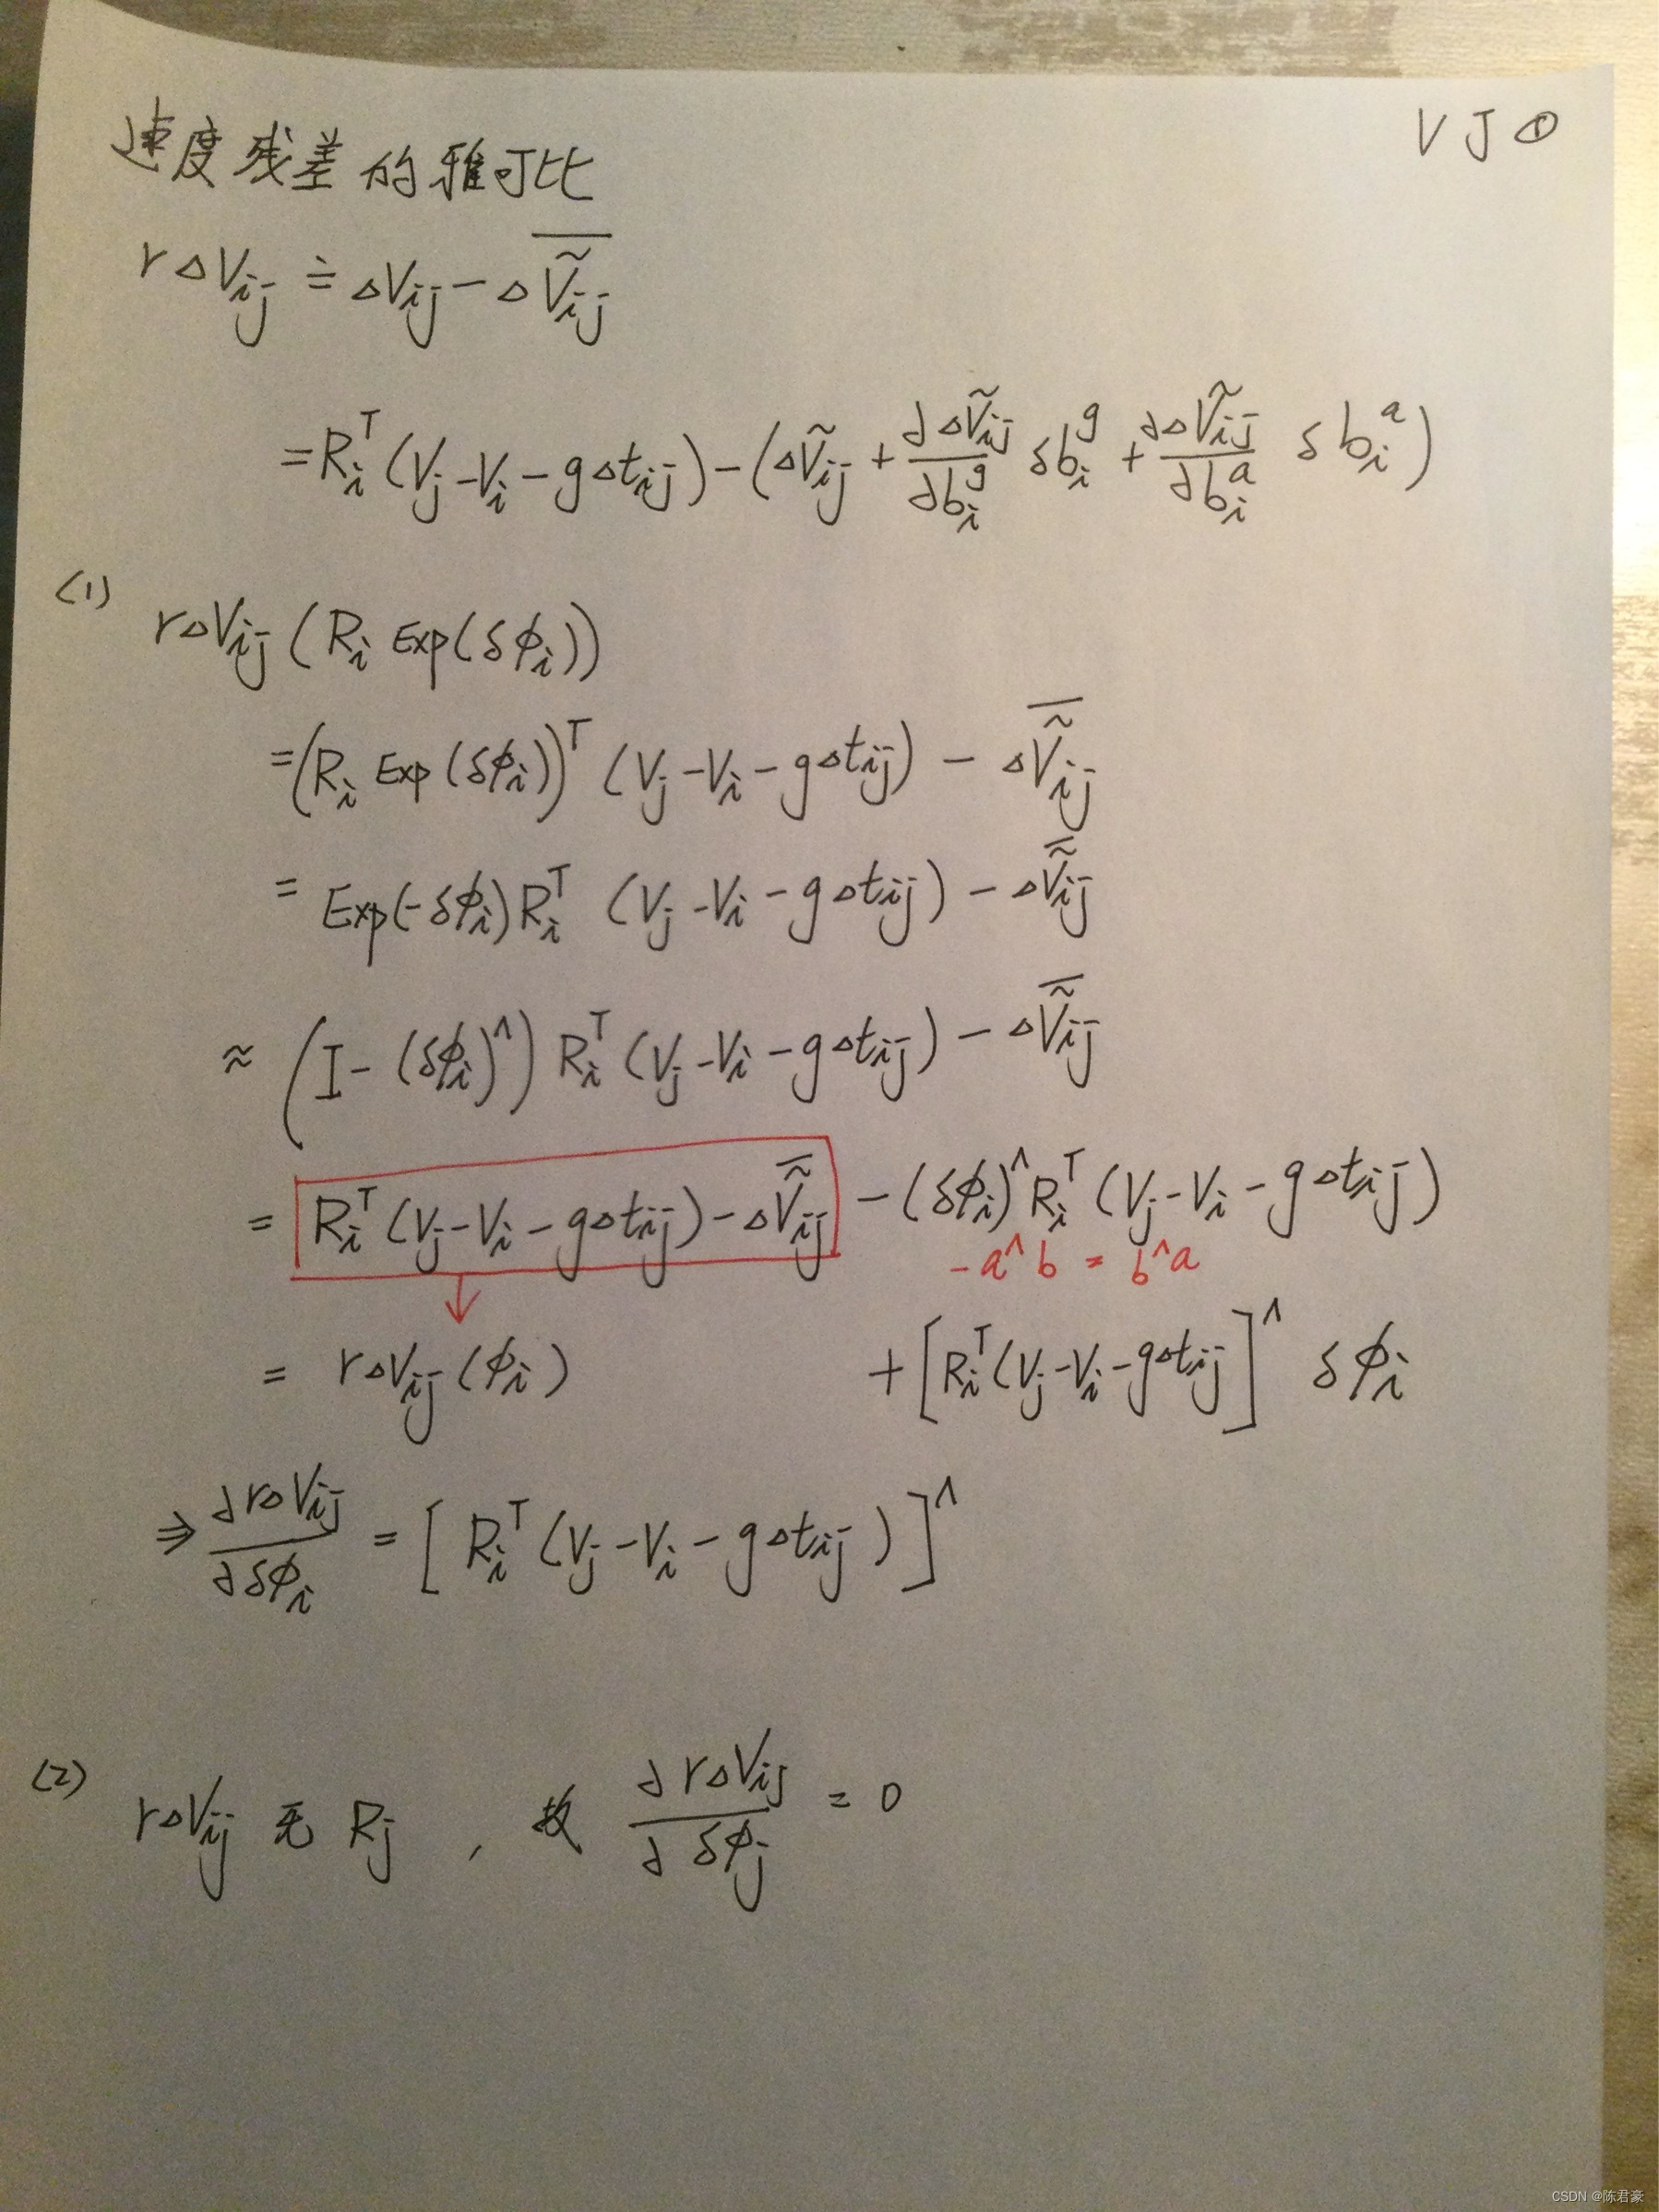 速度残差的雅可比
VJ①
r△V_{ij} ≐ △V_{ij} − △\overline{\tilde{V}_{ij}}
= R_i^T (V_j − V_i − g△t_{ij}) − (△\tilde{V}_{ij} + \frac{∂△\tilde{V}_{ij}}{∂b_i^g} δb_i^g + \frac{∂△\tilde{V}_{ij}}{∂b_i^a} δb_i^a)
(1)
r△V_{ij} (R_i Exp(δϕ_i))
= (R_i Exp(δϕ_i))^T (V_j − V_i − g△t_{ij}) − △\overline{\tilde{V}_{ij}}
= Exp(−δϕ_i) R_i^T (V_j − V_i − g△t_{ij}) − △\overline{\tilde{V}_{ij}}
≈ (I − (δϕ_i)^∧) R_i^T (V_j − V_i − g△t_{ij}) − △\overline{\tilde{V}_{ij}}
= R_i^T (V_j − V_i − g△t_{ij}) − △\overline{\tilde{V}_{ij}} − (δϕ_i)^∧ R_i^T (V_j − V_i − g△t_{ij})
−a^∧ b = b^∧ a
= r△V_{ij} (ϕ_i) + [R_i^T (V_j − V_i − g△t_{ij})]^∧ δϕ_i
⇒ \frac{∂r△V_{ij}}{∂δϕ_i} = [R_i^T (V_j − V_i − g△t_{ij})]^∧
(2)
r△V_{ij} 无 R_j , 故 \frac{∂r△V_{ij}}{∂δϕ_j} = 0
CSDN @陈君豪